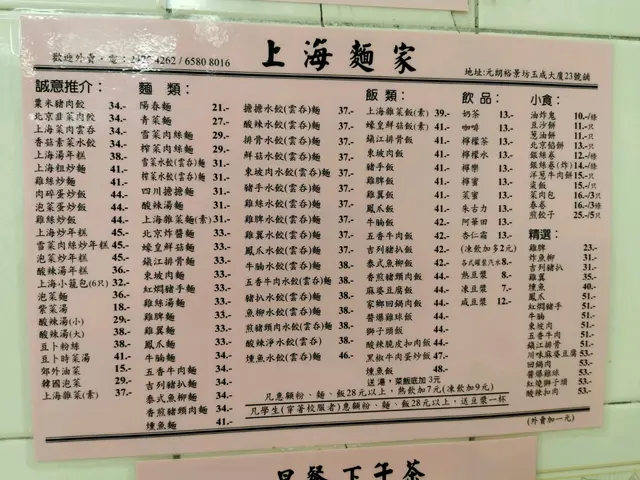 上海麵家
歡迎外賣。電：2476 4262 / 6580 8016
地址:元朗裕景坊玉成大廈23號舖
誠意推介：
粟米豬肉餃 34.-
北京韭菜肉餃 34.-
上海菜肉雲吞 34.-
香菇素菜水餃 34.-
上海湯年糕 38.-
上海粗炒麵 41.-
雞絲炒麵 41.-
肉碎蛋炒飯 44.-
泡菜蛋炒飯 44.-
雞絲炒飯 44.-
上海炒年糕 45.-
雪菜肉絲炒年糕 45.-
泡菜炒年糕 45.-
酸辣湯年糕 36.-
上海小籠包(6只) 32.-
泡菜麵 36.-
紫菜湯 18.-
酸辣湯(小) 29.-
酸辣湯(大) 38.-
豆卜粉絲 38.-
豆卜時菜湯 41.-
郊外油菜 15.-
韓國泡菜 29.-
上海雜菜(素) 37.-
麵 類：
陽春麵 21.-
青菜麵 27.-
雪菜肉絲麵 29.-
榨菜肉絲麵 29.-
雪菜水餃(雲吞)麵 31.-
榨菜水餃(雲吞)麵 31.-
四川擔擔麵 31.-
酸辣湯麵 31.-
上海雜菜麵(素) 31.-
北京炸醬麵 33.-
蠔皇鮮菇麵 33.-
鎮江排骨麵 33.-
東坡肉麵 33.-
紅燜豬手麵 33.-
雞絲湯麵 33.-
雞脾麵 33.-
雞翼麵 33.-
鳳爪麵 33.-
牛腩麵 34.-
五香牛肉麵 34.-
吉列豬扒麵 34.-
泰式魚柳麵 34.-
香煎豬頸肉麵 34.-
燻魚麵 41.-
擔擔水餃(雲吞)麵 37.-
酸辣水餃(雲吞)麵 37.-
排骨水餃(雲吞)麵 37.-
鮮菇水餃(雲吞)麵 37.-
東坡肉水餃(雲吞)麵 37.-
豬手水餃(雲吞)麵 37.-
雞絲水餃(雲吞)麵 37.-
雞脾水餃(雲吞)麵 37.-
雞翼水餃(雲吞)麵 37.-
鳳爪水餃(雲吞)麵 37.-
牛腩水餃(雲吞)麵 38.-
五香牛肉水餃(雲吞)麵 38.-
豬扒水餃(雲吞)麵 38.-
魚柳水餃(雲吞)麵 38.-
煎豬頸肉水餃(雲吞)麵 38.-
酸辣淨水餃(雲吞)麵 38.-
燻魚水餃(雲吞)麵 46.-
飯 類：
上海雜菜飯(素) 39.-
蠔皇鮮菇飯(素) 41.-
鎮江排骨飯 41.-
東坡肉飯 41.-
豬手飯 41.-
雞脾飯 41.-
雞翼飯 41.-
鳳爪飯 41.-
牛腩飯 42.-
五香牛肉飯 42.-
吉列豬扒飯 42.-
泰式魚柳飯 42.-
香煎豬頸肉飯 44.-
麻婆豆腐飯 44.-
家鄉回鍋肉飯 44.-
醬爆雞球飯 44.-
獅子頭飯 44.-
酸辣脆皮扣肉飯 44.-
黑椒牛肉蛋炒飯 47.-
燻魚飯 48.-
送湯，菜飯底加3元
飲 品：
奶茶 13.-
咖啡 13.-
檸檬茶 13.-
檸檬水 13.-
檸樂 13.-
檸蜜 13.-
菜蜜 13.-
朱古力 13.-
阿華田 13.-
杏仁霜 13.-
(凍飲加2元)
各式罐裝汽水 8.-
熱豆漿 8.-
凍豆漿 7.-
咸豆漿 12.-
小食：
油炸鬼 10.-/條
豆沙餅 11.-/只
蔥油餅 11.-/只
北京餡餅 13.-/只
銀絲卷 12.-/條
銀絲卷(炸) 14.-/條
洋蔥牛肉餅 15.-/只
棗飯 15.-/只
菜肉包 16.-/3只
春卷 16.-/3條
煎餃子 25.-/5只
精選：
雞脾 23.-
炸魚柳 31.-
吉列豬扒 31.-
雞翼 35.-
燻魚 40.-
鳳爪 51.-
紅燜豬手 51.-
牛腩 51.-
東坡肉 51.-
五香牛肉 51.-
鎮江排骨 51.-
川味麻婆豆腐 53.-
回鍋肉 53.-
醬爆雞球 53.-
紅燒獅子頭 53.-
酸辣扣肉 53.-
(外賣加一元)
凡惠顧粉、麵、飯28元以上，熱飲加7元(凍飲加9元)
凡學生(穿著校服者)惠顧粉、麵、飯28元以上，送豆漿一杯
早餐 下午茶